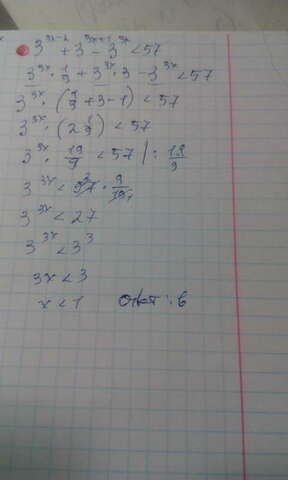 3^{3x-2} + 3^{3x+1} - 3^{3x} < 57
3^{3x} · 1/9 + 3^{3x} · 3 - 3^{3x} < 57
3^{3x} · (1/9 + 3 - 1) < 57
3^{3x} · (2 1/9) < 57
3^{3x} · 19/9 < 57 | : 19/9
3^{3x} < 57 · 9/19
3^{3x} < 27
3^{3x} < 3^3
3x < 3
x < 1 Ответ: б